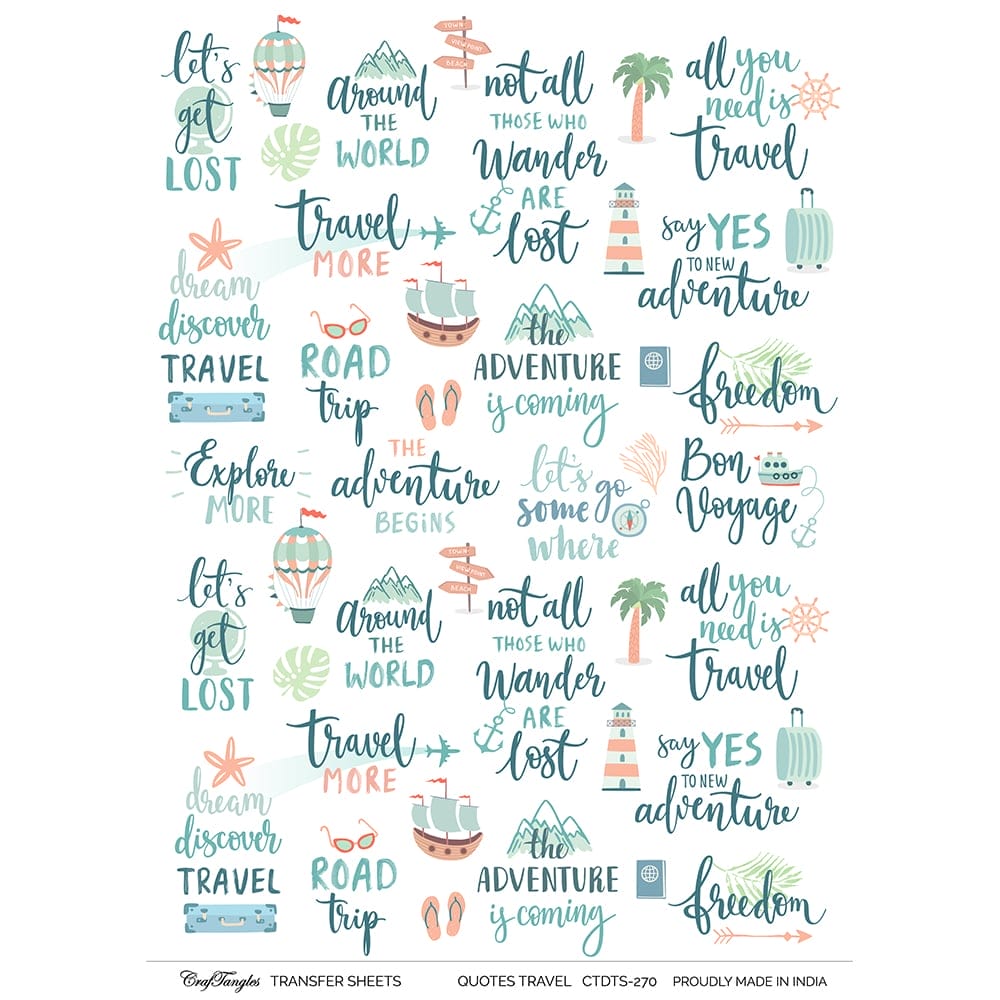 let's
get
LOST
around
THE
WORLD
TOWN
VIEW POINT
BEACH
not all
THOSE WHO
Wander
ARE
lost
all you
need is
travel
travel
MORE
say YES
TO NEW
adventure
dream
discover
TRAVEL
ROAD
trip
the
ADVENTURE
is coming
freedom
Explore
MORE
THE
adventure
BEGiNS
let's
go
some
where
Bon
Voyage
let's
get
LOST
around
THE
WORLD
TOWN
VIEW POINT
BEACH
not all
THOSE WHO
Wander
ARE
lost
all you
need is
travel
travel
MORE
say YES
TO NEW
adventure
dream
discover
TRAVEL
ROAD
trip
the
ADVENTURE
is coming
freedom
CrafTangles TRANSFER SHEETS QUOTES TRAVEL CTDTS-270 PROUDLY MADE IN INDIA